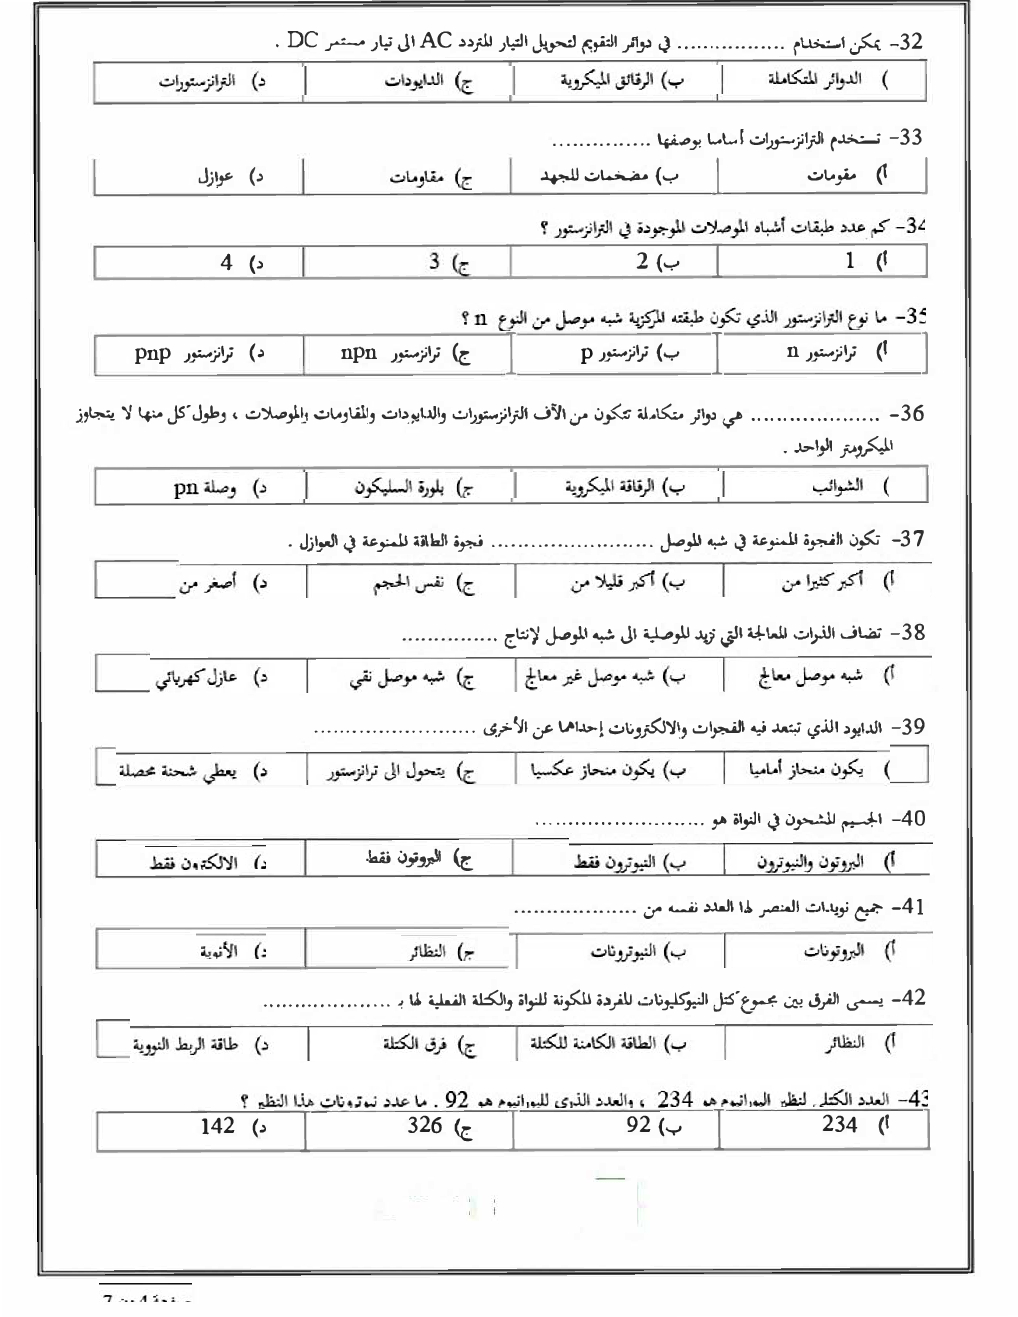 32- يمكن استخدام ................ في دوائر التقويم لتحويل التيار المتردد AC الى تيار مستمر DC .
) الدوائر المتكاملة ب) الرقائق الميكروية ج) الدايودات د) الترانزستورات
33- تستخدم الترانزستورات أساسا بوصفها ...............
أ) مقومات ب) مضخمات للجهد ج) مقاومات د) عوازل
34- كم عدد طبقات أشباه الموصلات الموجودة في الترانزستور ؟
أ) 1 ب) 2 ج) 3 د) 4
35- ما نوع الترانزستور الذي تكون طبقته المركزية شبه موصل من النوع n ؟
أ) ترانزستور n ب) ترانزستور p ج) ترانزستور npn د) ترانزستور pnp
36- .................... هي دوائر متكاملة تتكون من الآف الترانزستورات والدايودات والمقاومات والموصلات ، وطول كل منها لا يتجاوز
الميكرومتر الواحد .
) الشوائب ب) الرقاقة الميكروية ج) بلورة السليكون د) وصلة pn
37- تكون الفجوة الممنوعة في شبه الموصل ......................... فجوة الطاقة الممنوعة في العوازل .
أ) أكبر كثيرا من ب) أكبر قليلا من ج) نفس الحجم د) أصغر من
38- تضاف الذرات المعالجة التي تزيد الموصلية الى شبه الموصل لإنتاج ...............
أ) شبه موصل معالج ب) شبه موصل غير معالج ج) شبه موصل نقي د) عازل كهربائي
39- الدايود الذي تبتعد فيه الفجوات والالكترونات إحداهما عن الأخرى ..........................
) يكون منحاز أماميا ب) يكون منحاز عكسيا ج) يتحول الى ترانزستور د) يعطي شحنة محصلة
40- الجسيم المشحون في النواة هو ...........................
أ) البروتون والنيوترون ب) النيوترون فقط ج) البروتون فقط د) الالكترون فقط
41- جميع نويدات العنصر لها العدد نفسه من ...................
أ) البروتونات ب) النيوترونات ج) النظائر د) الأنوية
42- يسمى الفرق بين مجموع كتل النيوكليونات المفردة المكونة للنواة والكتلة الفعلية لها بـ ....................
أ) النظائر ب) الطاقة الكامنة للكتلة ج) فرق الكتلة د) طاقة الربط النووية
43- العدد الكتلي لنظير اليورانيوم هو 234 ، والعدد الذري لليورانيوم هو 92 . ما عدد نيوترونات هذا النظير ؟
أ) 234 ب) 92 ج) 326 د) 142
صفحة 4 من 7